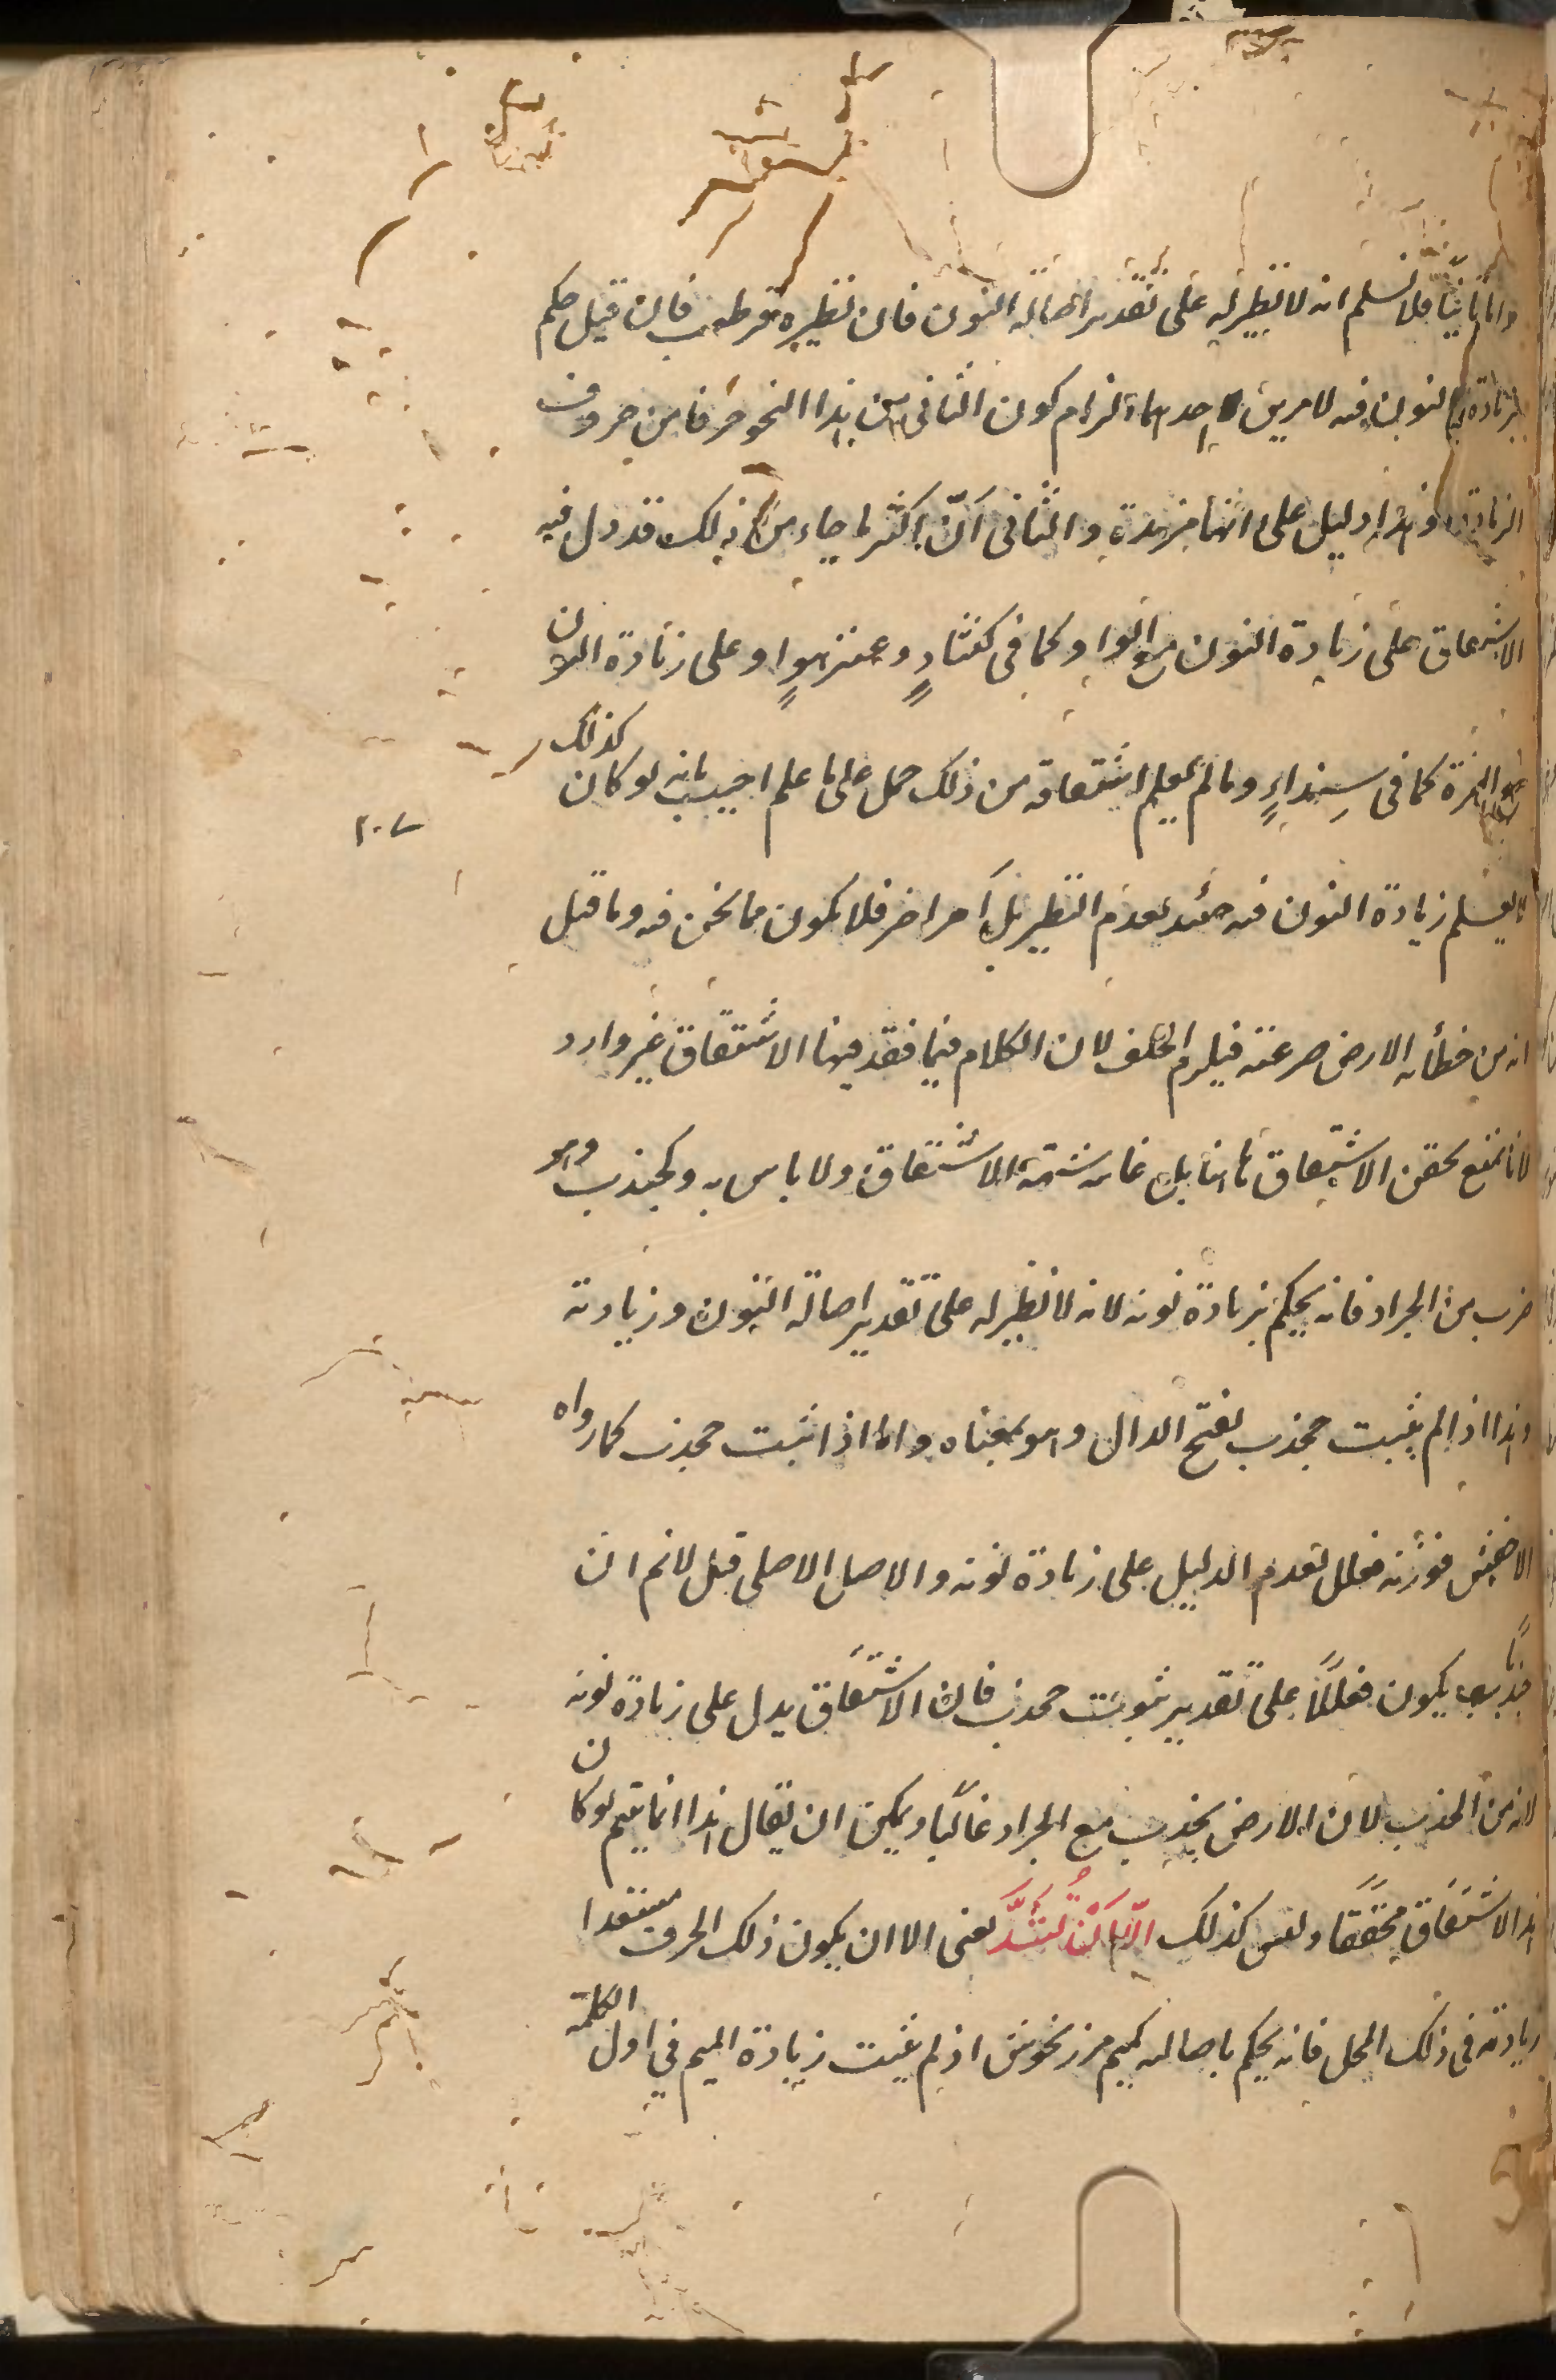 واما ثانيًا فلا نسلم انه لا نظير له على تقدير اصالة النون فان نظيره قرطعب فان قيل حكم
بزيادة النون فيه لامرين احدهما التزام كون الثاني من هذا النحو حرفا من حروف
الزيادة وهذا دليل على انها مزيدة والثاني انّ اكثر ما جاء من ذلك قد دل فيه
الاشتقاق على زيادة النون مع الواو كما في كنثاوٍ وعنزهوٍ وعلى زيادة النون
مع الهمزة كما في سِنداءٍ وما لم يعلم اشتقاقه من ذلك حمل على ما علم اجيب بانه لو كان كذلك
لا يعلم زيادة النون فيه حينئذ لعدم النظير بل آمر اخر فلا يكون مما نحن فيه وما قيل
انه من خطأ به الارض صرعته فيلزم الخلف لان الكلام فيما فقد فيها الاشتقاق غير وارد
لانا نمنع تحقق الاشتقاق هاهنا بل غايته شبهة الاشتقاق ولا باس به وكجندب وهو
ضرب من الجراد فانه يحكم بزيادة نونه لانه لا نظير له على تقدير اصالة النون وزيادته
وهذا اذا لم يثبت جحدب بفتح الدال وهو بمعناه واما اذا ثبت جحدب كما رواه
الاخفش فوزنه فعلل لعدم الدليل على زيادة نونه والاصل الاصلى قيل لانم ان
جندبًا يكون فعللًا على تقدير ثبوت جحدب فان الاشتقاق يدل على زيادة نونه
لانه من الجدب لان الارض يجدب مع الجراد غالبًا ويمكن ان يقال هذا انما يتم لو كان
هذا الاشتقاق محققًا وليس كذلك الّا اَنْ تُشَذَّ يعني الا ان يكون ذلك الحرف
زيادته في ذلك المحل فانه يحكم باصالته كميم مرزنجوش اذ لم يثبت زيادة الميم في اول الكلمة